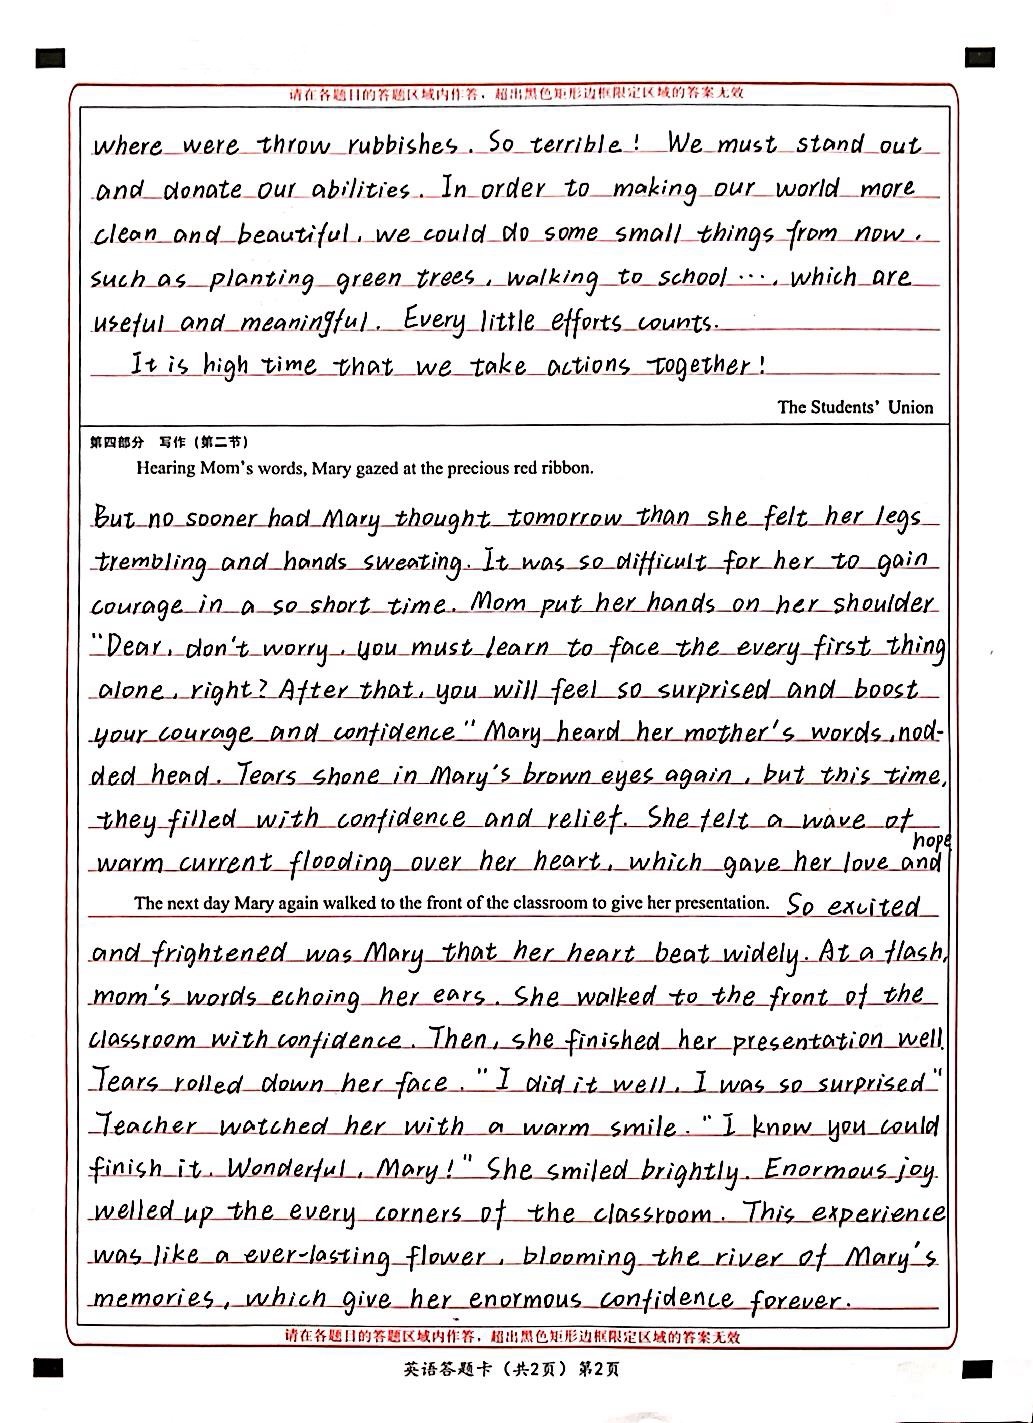 请在各题目的答题区域内作答，超出黑色矩形边框限定区域的答案无效
where were throw rubbishes. So terrible! We must stand out
and donate our abilities. In order to making our world more
clean and beautiful, we could do some small things from now,
such as planting green trees, walking to school ..., which are
useful and meaningful. Every little efforts counts.
It is high time that we take actions together!
The Students' Union
第四部分 写作（第二节）
Hearing Mom's words, Mary gazed at the precious red ribbon.
But no sooner had Mary thought tomorrow than she felt her legs
trembling and hands sweating. It was so difficult for her to gain
courage in a so short time. Mom put her hands on her shoulder
"Dear, don't worry, you must learn to face the every first thing
alone, right? After that, you will feel so surprised and boost
your courage and confidence" Mary heard her mother's words, nod-
ded head. Tears shone in Mary's brown eyes again, but this time,
they filled with confidence and relief. She felt a wave of
warm current flooding over her heart, which gave her love and hope
The next day Mary again walked to the front of the classroom to give her presentation. So excited
and frightened was Mary that her heart beat widely. At a flash,
mom's words echoing her ears. She walked to the front of the
classroom with confidence. Then, she finished her presentation well.
Tears rolled down her face. "I did it well, I was so surprised"
Teacher watched her with a warm smile. "I know you could
finish it. Wonderful, Mary!" She smiled brightly. Enormous joy
welled up the every corners of the classroom. This experience
was like a ever-lasting flower, blooming the river of Mary's
memories, which give her enormous confidence forever.
请在各题目的答题区域内作答，超出黑色矩形边框限定区域的答案无效
英语答题卡（共2页）第2页